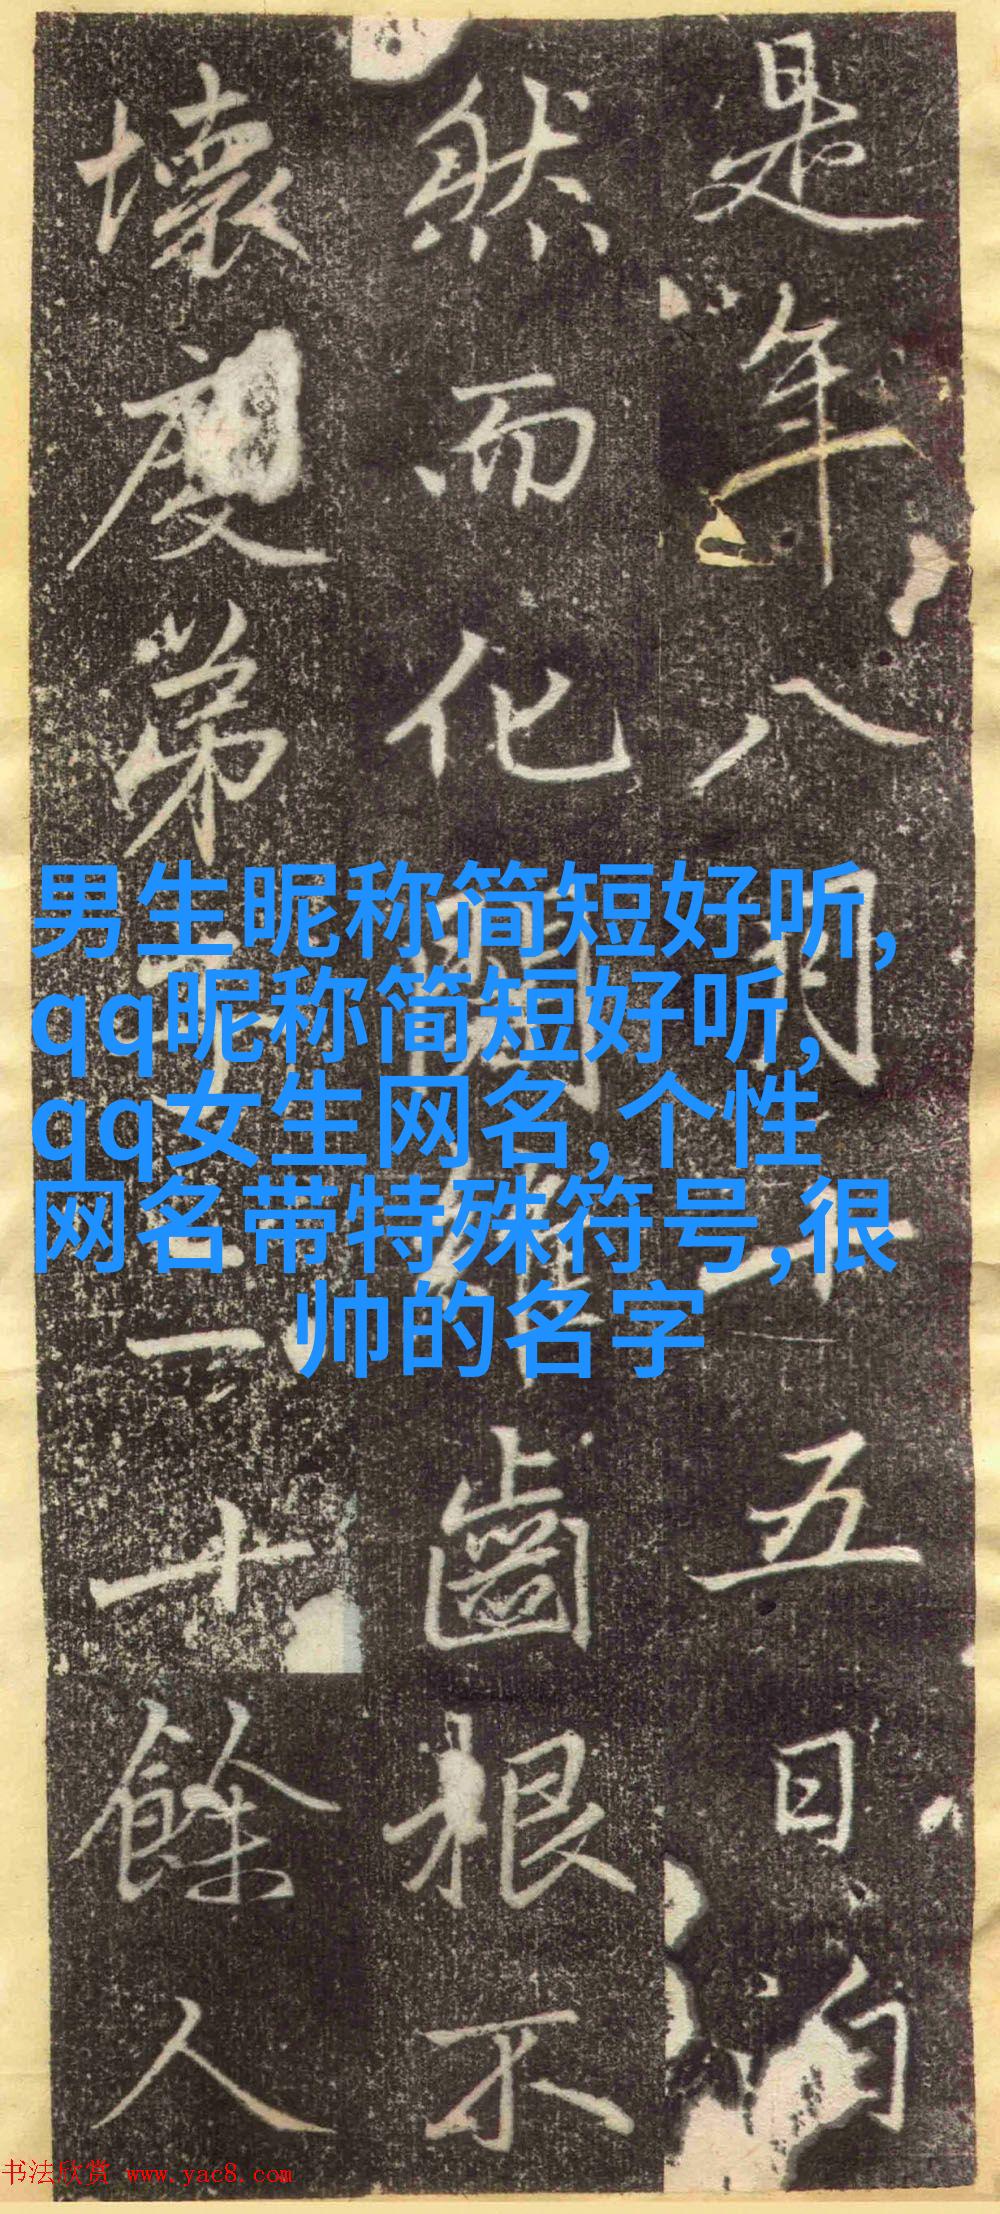 是年八月十五日
然而化闍維齒根不
壞度弟子十餘人
男生昵称简短好听,
qq昵称简短好听,
qq女生网名,个性
网名带特殊符号,很
帅的名字
书法欣赏 www.yac8.com